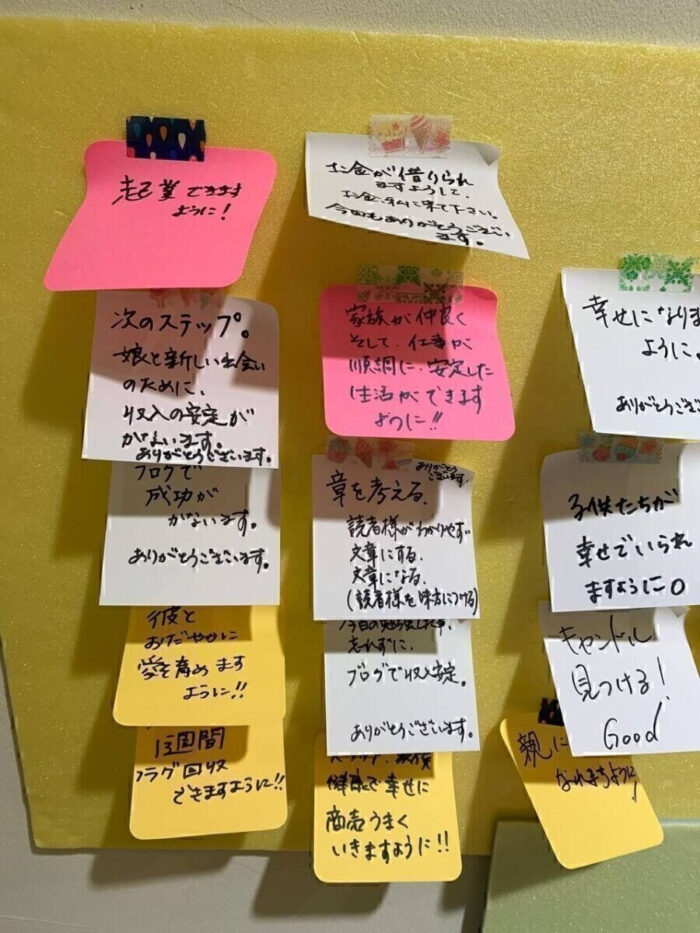 起業できます
ように!
お金が借りられ
ますようにして、
お金、私に来て下さい。
今回もありがとうござい
ます。
次のステップ。
娘と新しい出会い
のために、
収入の安定が
かないます。
ありがとうございます。
家族が仲良く
そして、仕事が
順調に、安定した
生活ができます
ように!!
幸せになりま
ように。
ありがとうござい
ブログで
成功が
かないます。
ありがとうございます。
ありがとう
ございます。
章を考える、
読者様がわかりやすい
文章にする、
文章になる、
(読者様を味方につける)
子供たちが
幸せでいられ
ますように。
彼と
おだやかに
愛を育めます
ように!!
今日の勉強した事、
忘れずに、
ブログで収入安定。
ありがとうございます。
キャンドル
見つける!
Good
1週間
フラグ回収
できますように!!
健康で幸せに
商売うまく
いきますように!!
親に
なれますように!